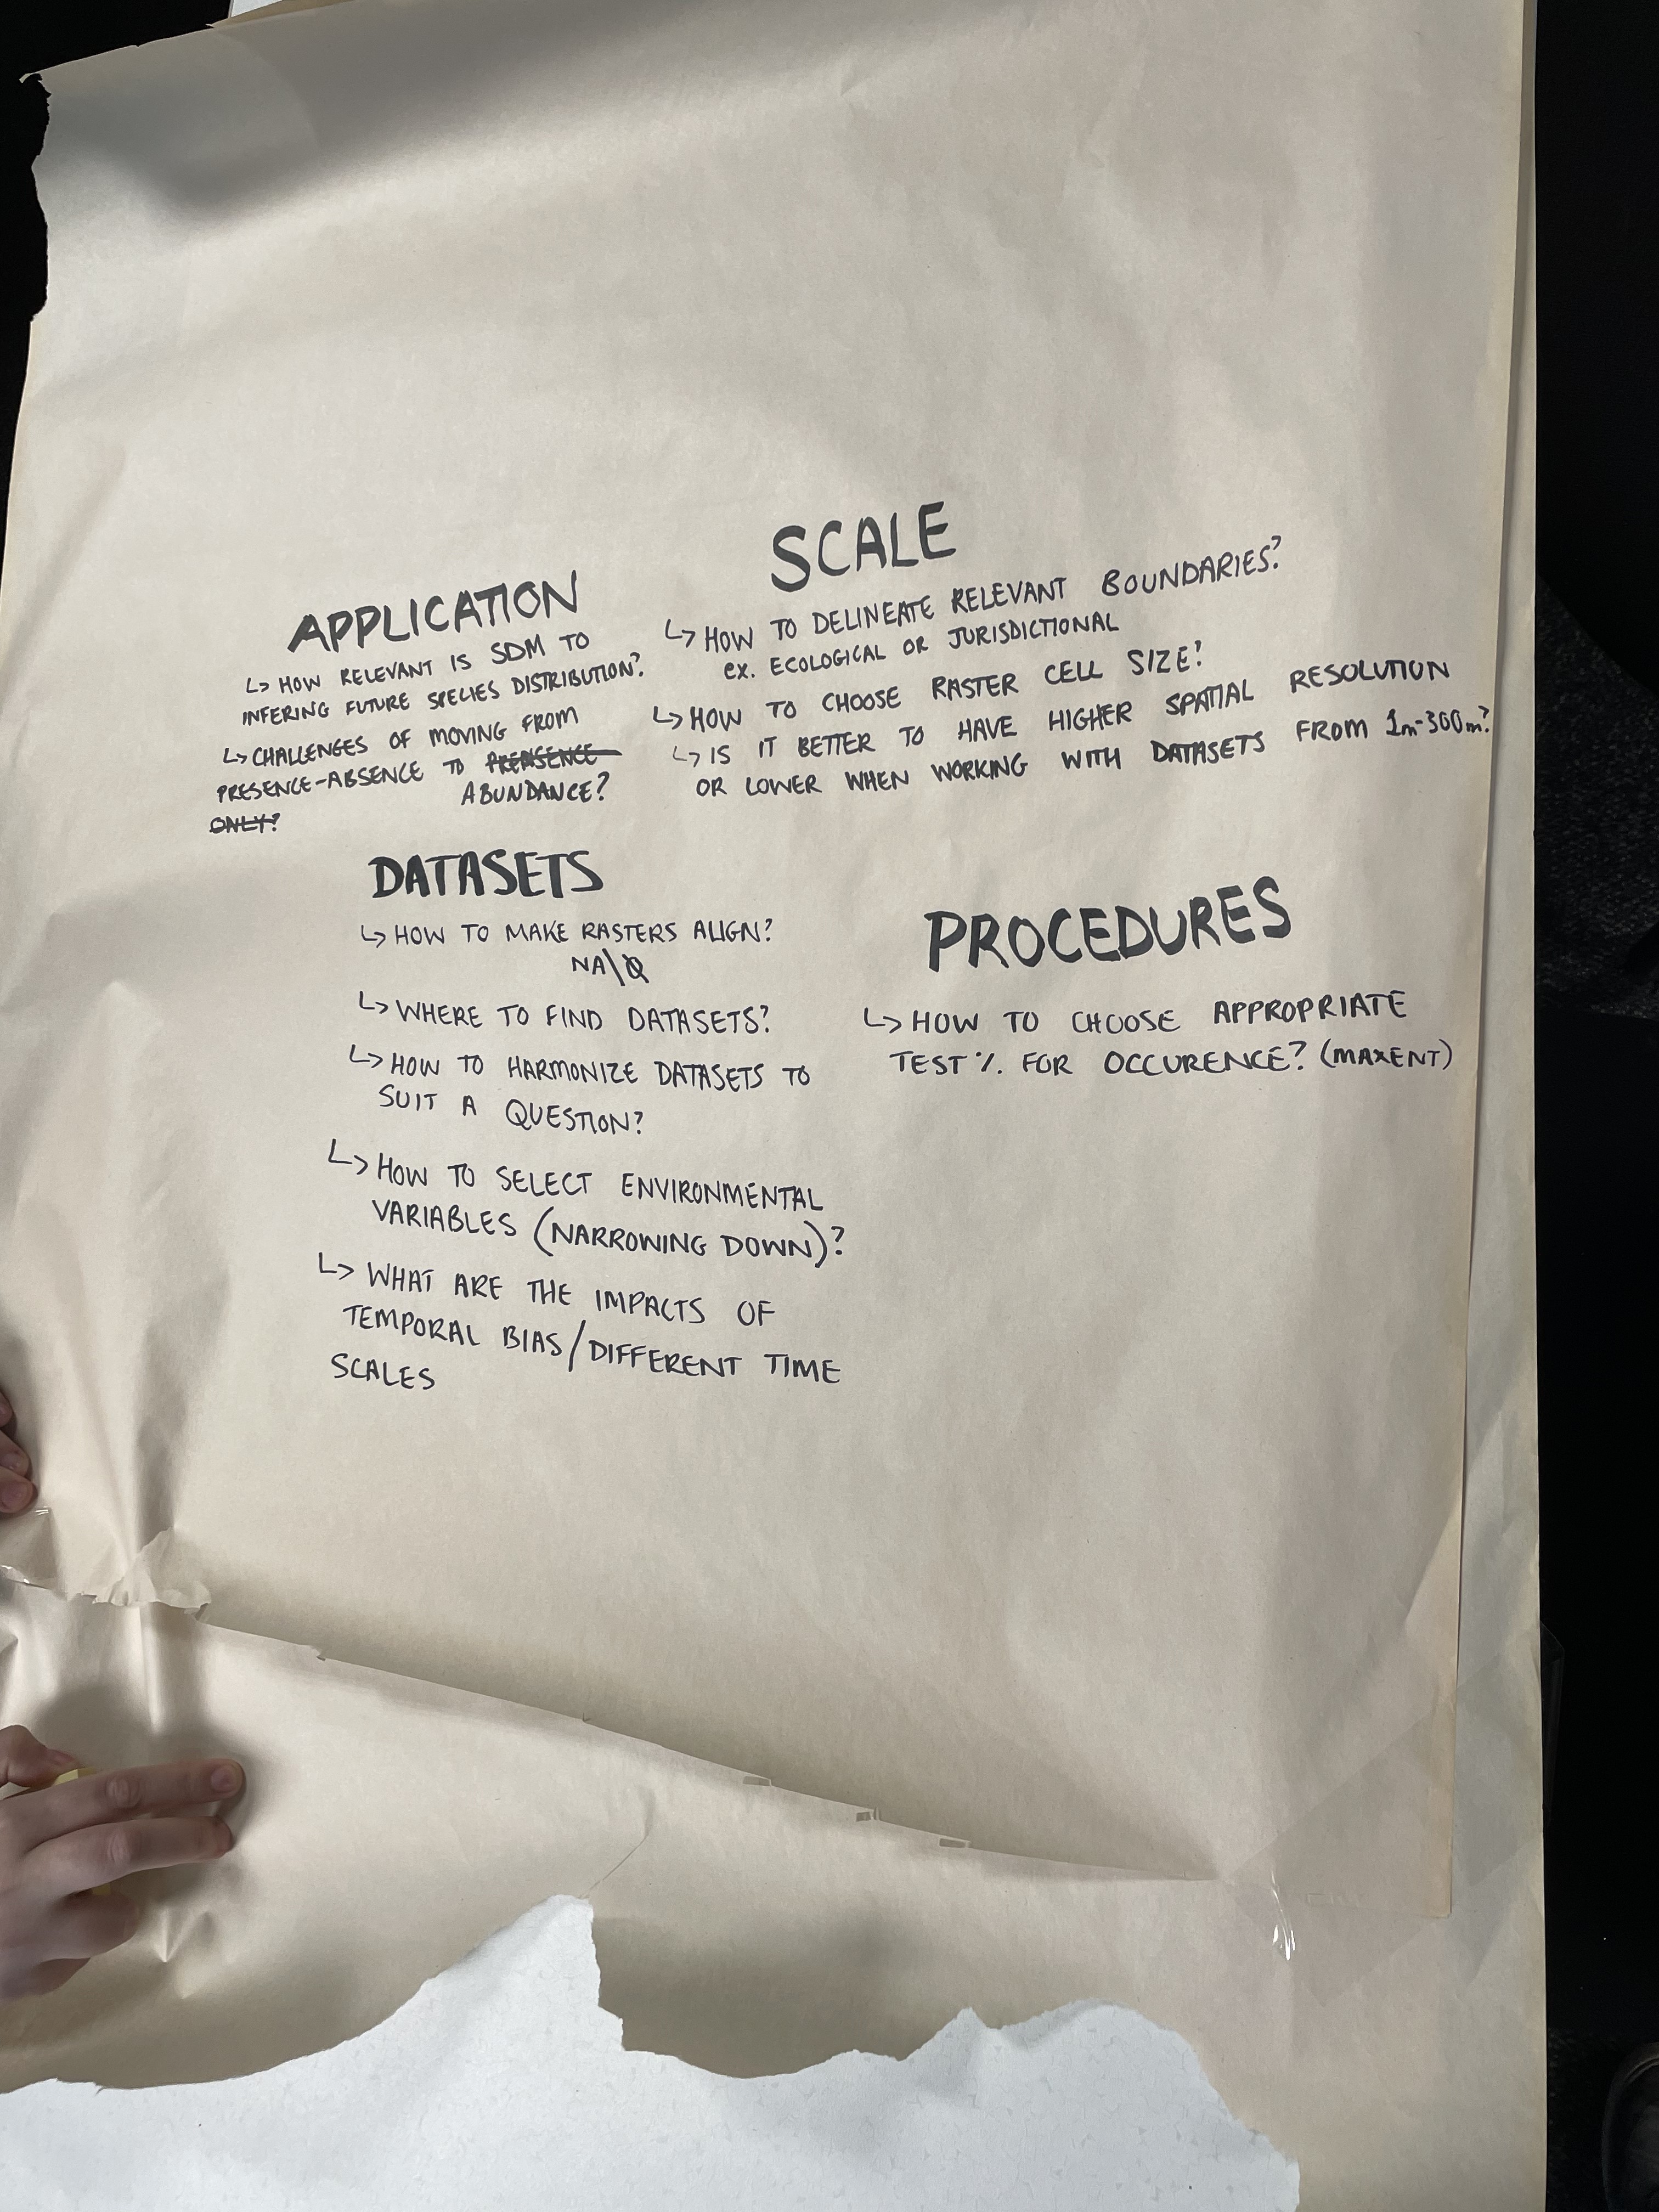 APPLICATION
↳ HOW RELEVANT IS SDM TO
INFERING FUTURE SPECIES DISTRIBUTION?
↳ CHALLENGES OF MOVING FROM
PRESENCE-ABSENCE TO
ABUNDANCE?
ONLY?
SCALE
↳ HOW TO DELINEATE RELEVANT BOUNDARIES?
ex. ECOLOGICAL OR JURISDICTIONAL
↳ HOW TO CHOOSE RASTER CELL SIZE?
↳ IS IT BETTER TO HAVE HIGHER SPATIAL RESOLUTION
OR LOWER WHEN WORKING WITH DATASETS FROM 1m-300m?
DATASETS
↳ HOW TO MAKE RASTERS ALIGN?
NA\
↳ WHERE TO FIND DATASETS?
↳ HOW TO HARMONIZE DATASETS TO
SUIT A QUESTION?
↳ HOW TO SELECT ENVIRONMENTAL
VARIABLES (NARROWING DOWN)?
↳ WHAT ARE THE IMPACTS OF
TEMPORAL BIAS/DIFFERENT TIME
SCALES
PROCEDURES
↳ HOW TO CHOOSE APPROPRIATE
TEST % FOR OCCURENCE? (MAXENT)